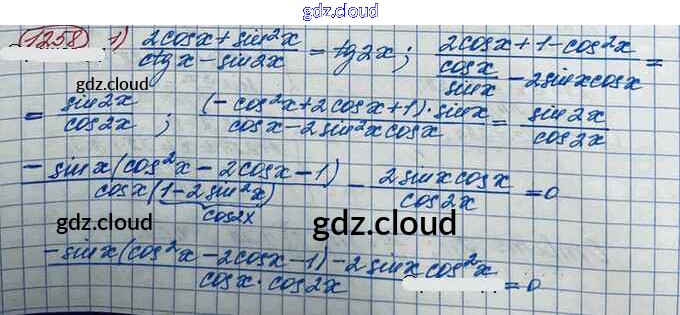 gdz.cloud
gdz.cloud
1258 1) (2cosx + sin²x)/(ctgx - sin2x) = tg2x; (2cosx + 1 - cos²x)/(cosx/sinx - 2sinxcosx) =
gdz.cloud
= sin2x/cos2x; ((-cos²x + 2cosx + 1)·sinx)/(cosx - 2sin²xcosx) = sin2x/cos2x
(-sinx(cos²x - 2cosx - 1))/(cosx(1 - 2sin²x)) - (2sinxcosx)/cos2x = 0
cos2x
gdz.cloud
gdz.cloud
(-sinx(cos²x - 2cosx - 1) - 2sinxcos²x)/(cosx·cos2x) = 0